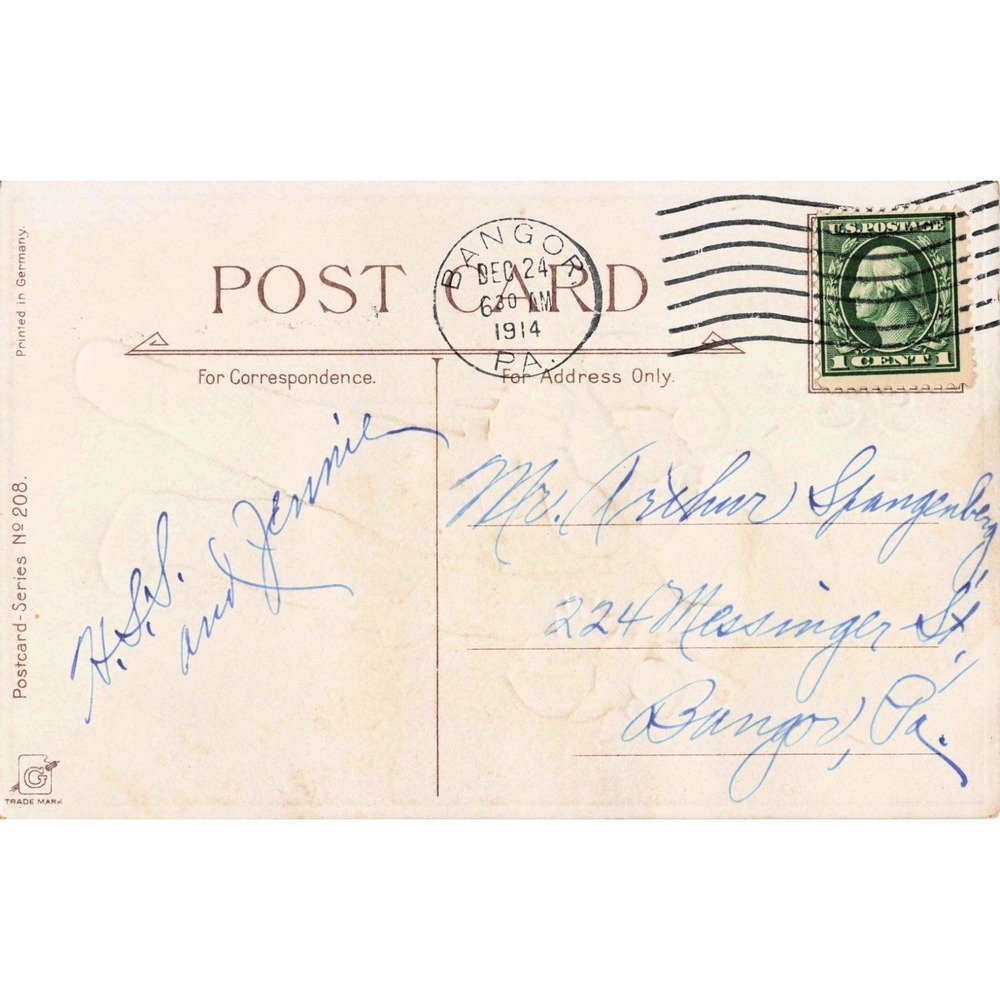 Printed in Germany.
POST CARD
BANGOR,
DEC 24
6 30 AM
1914
PA.
U.S. POSTAGE
1 CENT 1
For Correspondence.
For Address Only.
H.S.S.
and Jennie
Mr. Arthur Spangenberg,
224 Messinger St,
Bangor, Pa.
Postcard-Series No 208.
G
TRADE MARK